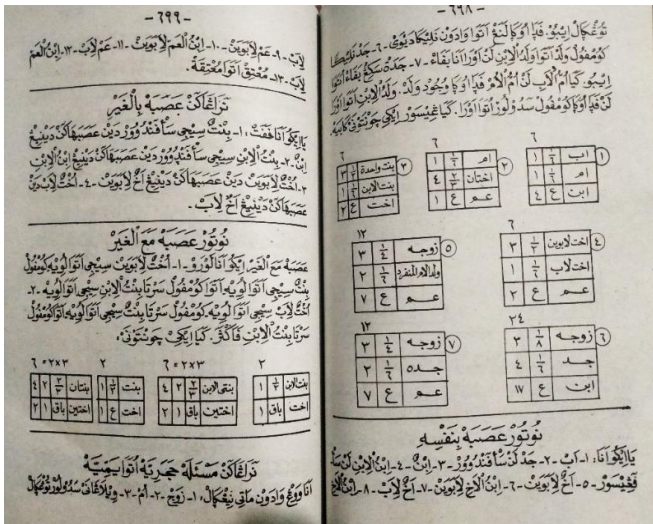 -٦٩٨-
توڠڮال ايبو. فدا اوڮا لنڠ اتوا وادون نليكا ديوي -٦- جد نليكا
كومفول ولد اتوا ولد الابن لن اورا انا بفاء -٧- جدة سكڠ بفاء اتوا
ايبو. كيا ام الاب لن ام الام فدا اوڮا وجود ولد. ولد الابن اتوا اورا
لن فدا اوڮا كومفول سدولور اتوا اورا. كيا ڠيسور ايكي چونتوني كابيه.
٦ ٦ ٦
١ اب ١/٦ ١
ام ١/٦ ١
ابن ع ٤
٢ ام ١/٦ ١
اختان ٢/٣ ٤
عم ع ١
٣ بنت واحدة ١/٢ ٣
بنت الابن ١/٦ ١
اخت ع ٢
٦
٤ اخت لابوين ١/٢ ٣
اخت لاب ١/٦ ١
عم ع ٢
١٢
٥ زوجه ١/٤ ٣
ولد الام المنفرد ١/٦ ٢
عم ع ٧
٢٤
٦ زوجه ١/٨ ٣
جد ١/٦ ٤
ابن ع ١٧
١٢
٧ زوجه ١/٤ ٣
جده ١/٦ ٢
عم ع ٧
نوتور عصبه بنفسه
يا ايكو انا: ١- اب -٢- جد لن سأفندوور -٣- ابن -٤- ابن الابن لن سأ
فڠيسور -٥- اخ لابوين -٦- ابن الاخ لابوين -٧- اخ لاب -٨- ابن الاخ
-٦٩٩-
لاب -٩- عم لابوين -١٠- ابن العم لابوين -١١- عم لاب -١٢- ابن العم
لاب -١٣- معتق اتوا معتقة.
نراڠاكن عصبه بالغير
يا ايكو انا ففت: ١- بنت سيجي سأفندوور دين عصبهاكن دينيڠ
ابن -٢- بنت الابن سيجي سأفندوور دين عصبهاكن دينيڠ ابن الابن
٣- اخت لابوين دين عصبهاكن دينيڠ اخ لابوين -٤- اخت لاب دين
عصبهاكن دينيڠ اخ لاب.
نوتور عصبه مع الغير
عصبه مع الغير ايكو انا لورو -١- اخت لابوين سيجي اتوا لويه كومفول
بنت سيجي اتوا لويه. اتوا كومفول سرتا بنت الابن سيجي اتوا لويه -٢-
اخت لاب سيجي اتوا لويه. كومفول بنت سيجي اتوا لويه اتوا كومفول
سرتا بنت الابن فأكثر. كيا ايكي چونتوني:
٢
بنت الابن ١/٢ ١
اخت باق ١
٦ = ٢×٣
بنتي الابن ٢/٣ ٢ ٤
اختين باق ١ ٢
٢
بنت ١/٢ ١
اخت ع ١
٦ = ٢×٣
بنتان ٢/٣ ٢ ٤
اختين باق ١ ٢
نراڠاكن مسئله حجرية اتوا يمية
انا ووڠ وادون ماتي نيڠڮال: ١- زوج -٢- ام -٣- سدولور توڠڮال